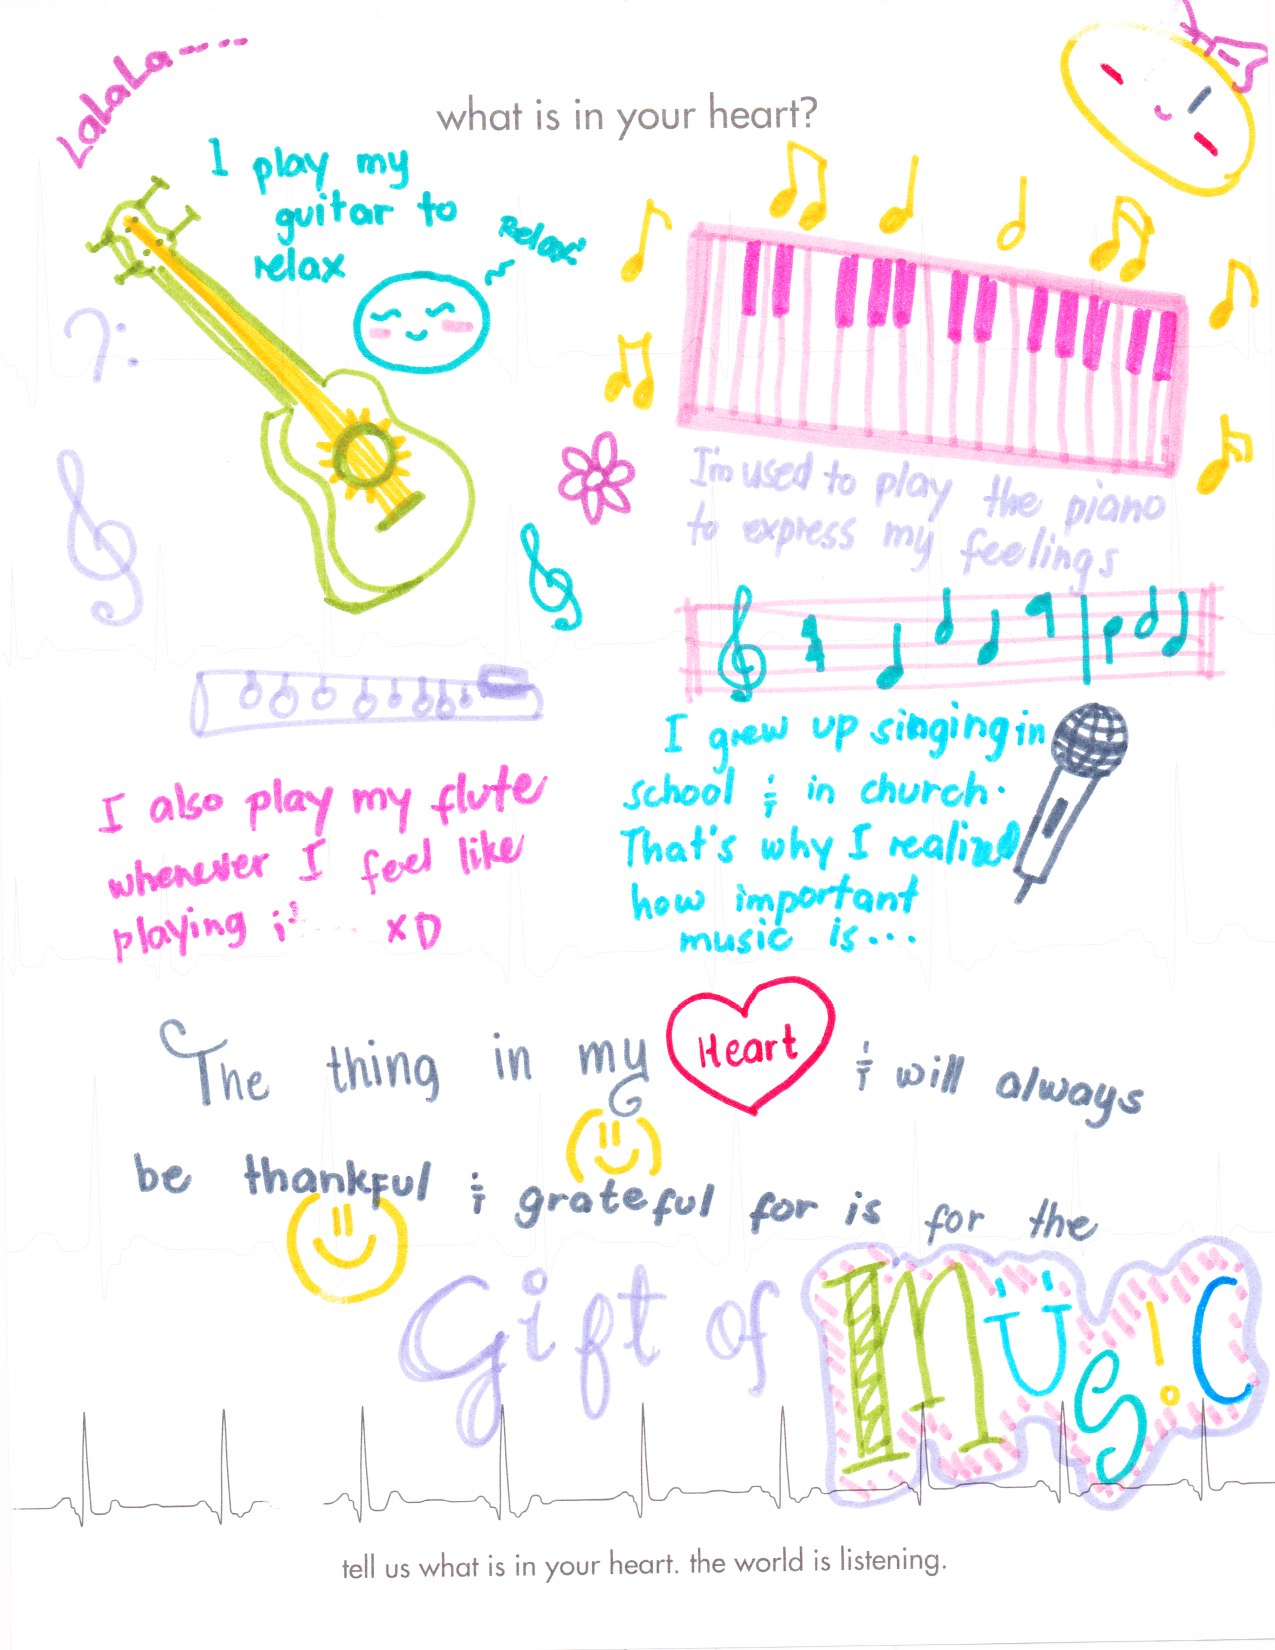 LaLaLaLa----
what is in your heart?
I play my
guitar to
relax
Relax
I'm used to play the piano
to express my feelings
I grew up singing in
school & in church.
That's why I realized
how important
music is...
I also play my flute
whenever I feel like
playing it... XD
The thing in my Heart & will always
be thankful & grateful for is for the
Gift of MUS!C
tell us what is in your heart. the world is listening.